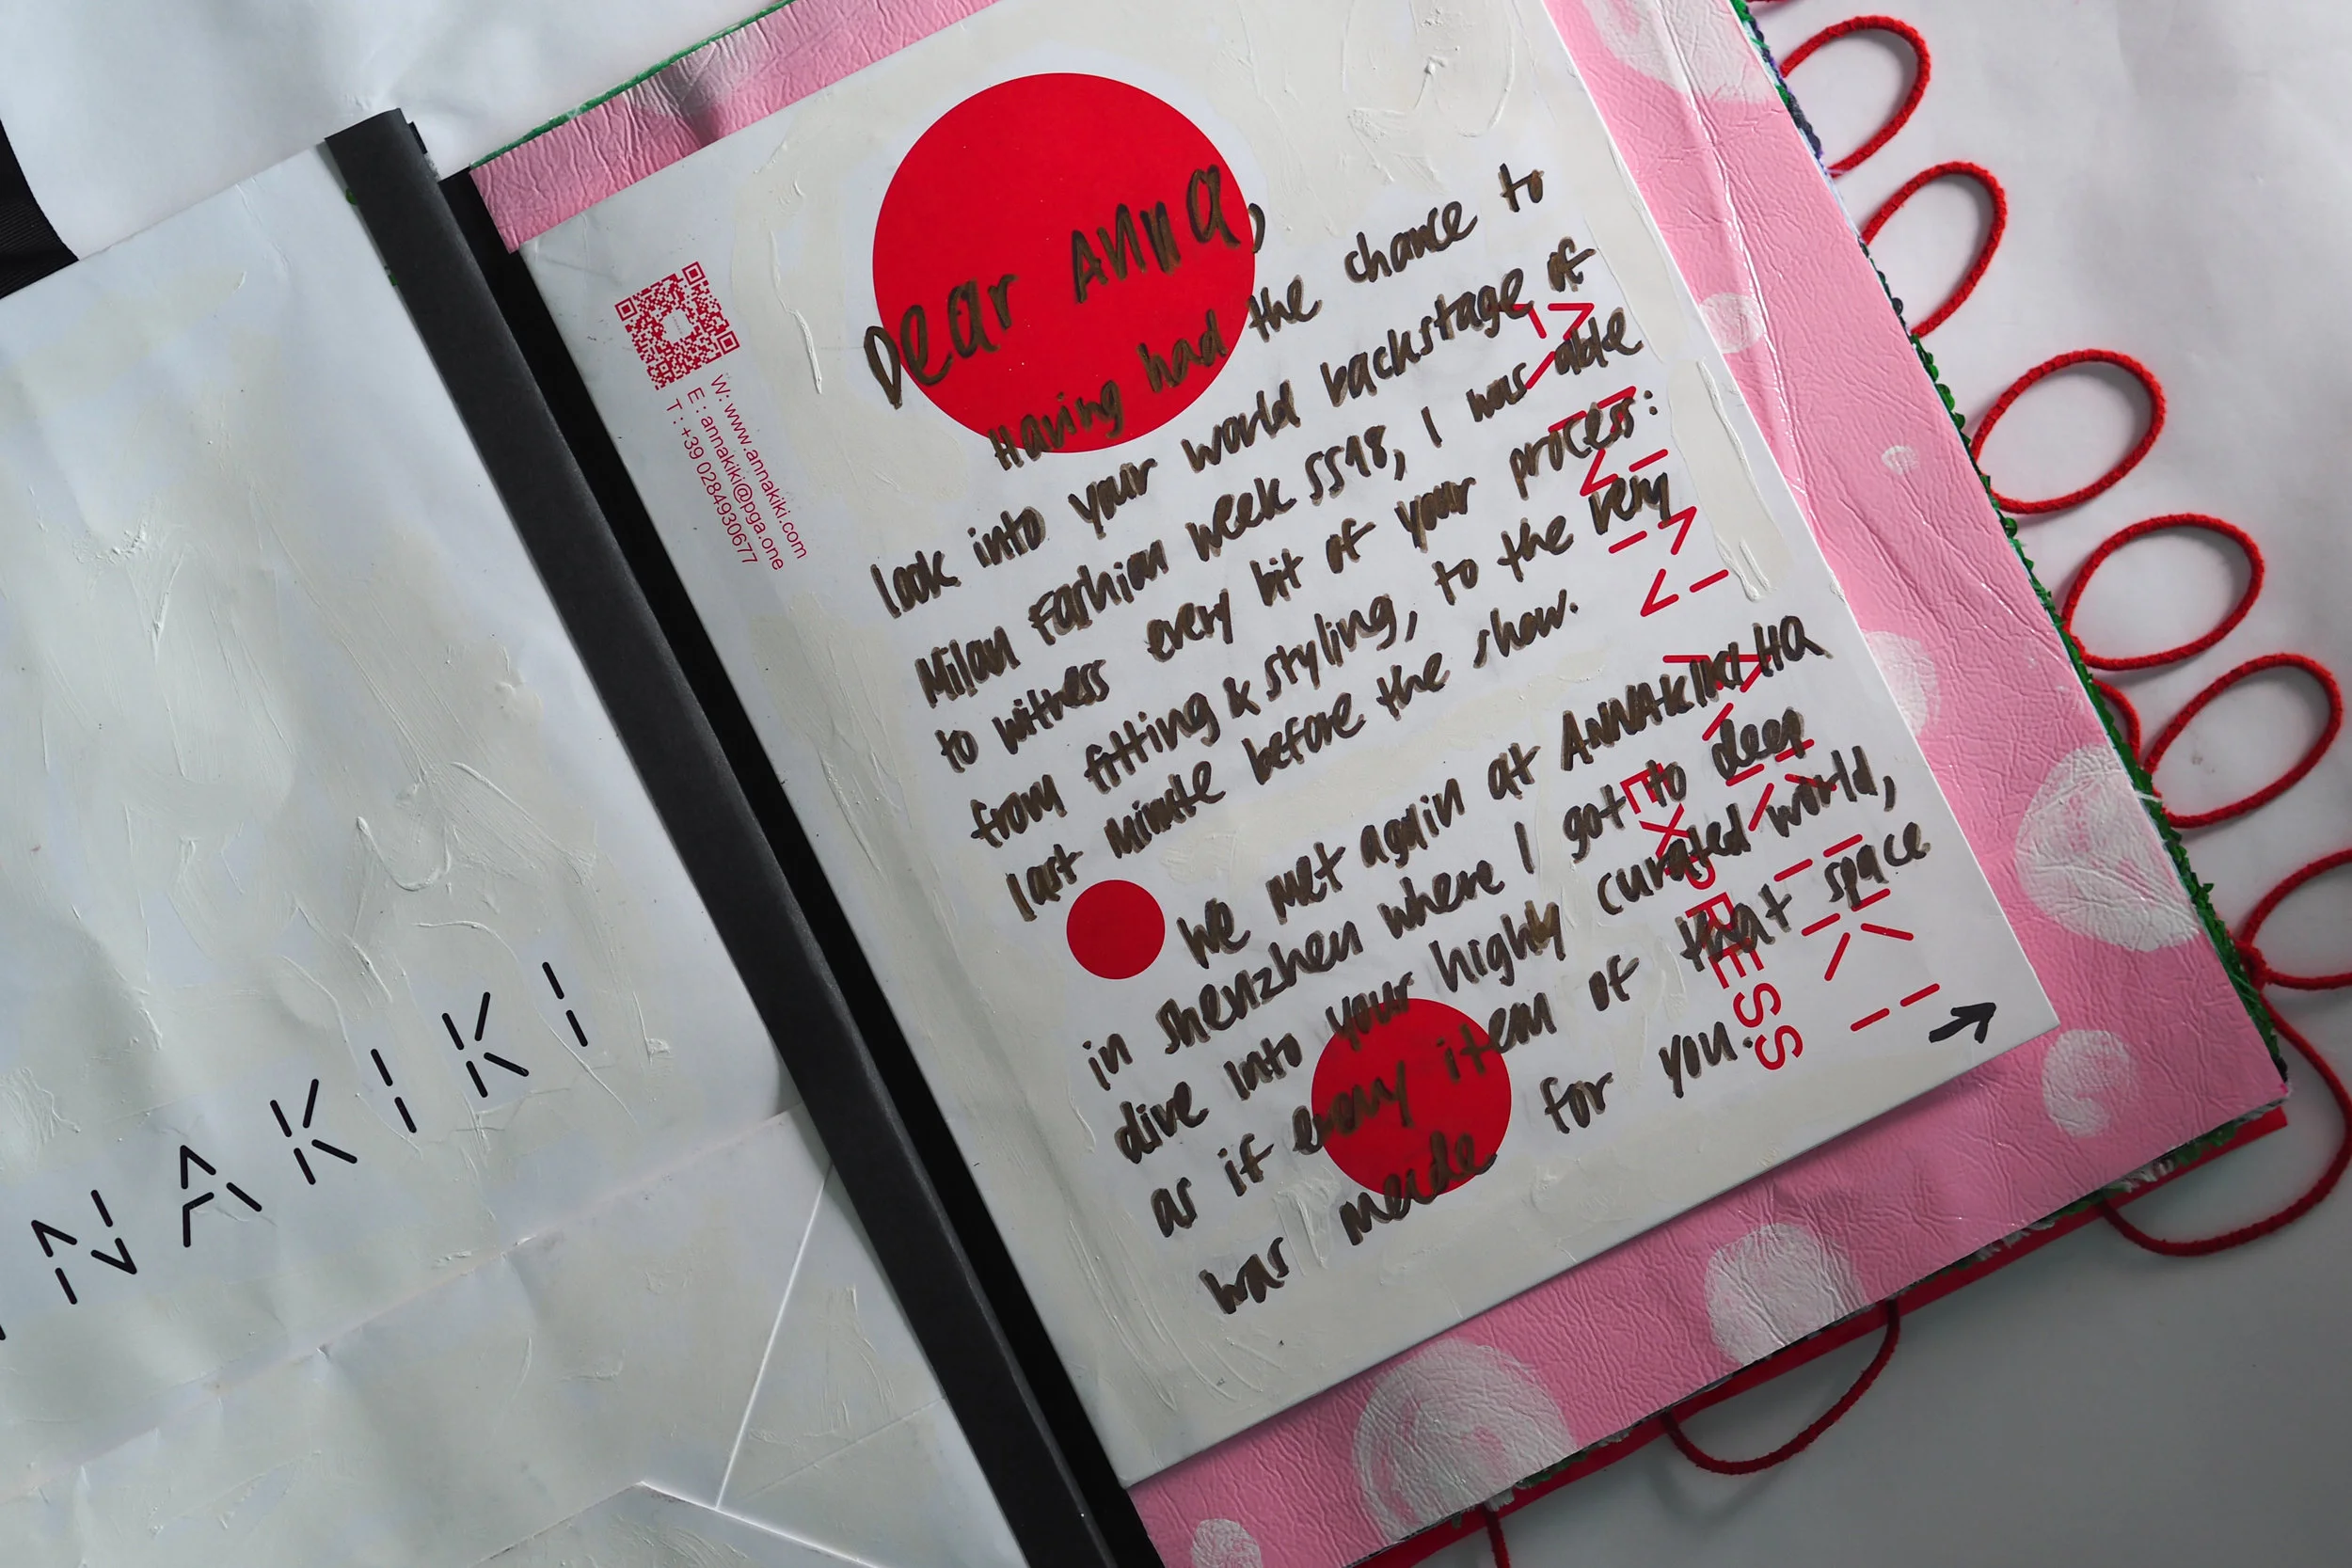 Dear ANNA,
Having had the chance to
look into your world backstage of
Milan Fashion Week SS18, I was able
to witness every bit of your process:
from fitting & styling, to the very
last minute before the show.
We met again at ANNAKIKI HQ
in Shenzhen where I got to deep
dive into your highly curated world,
as if every item of that space
was made for you.
W: www.annakiki.com
E: annakiki@pga.one
T: +39 0284930677
ANNAKIKI
EXPRESS
NAKIKI